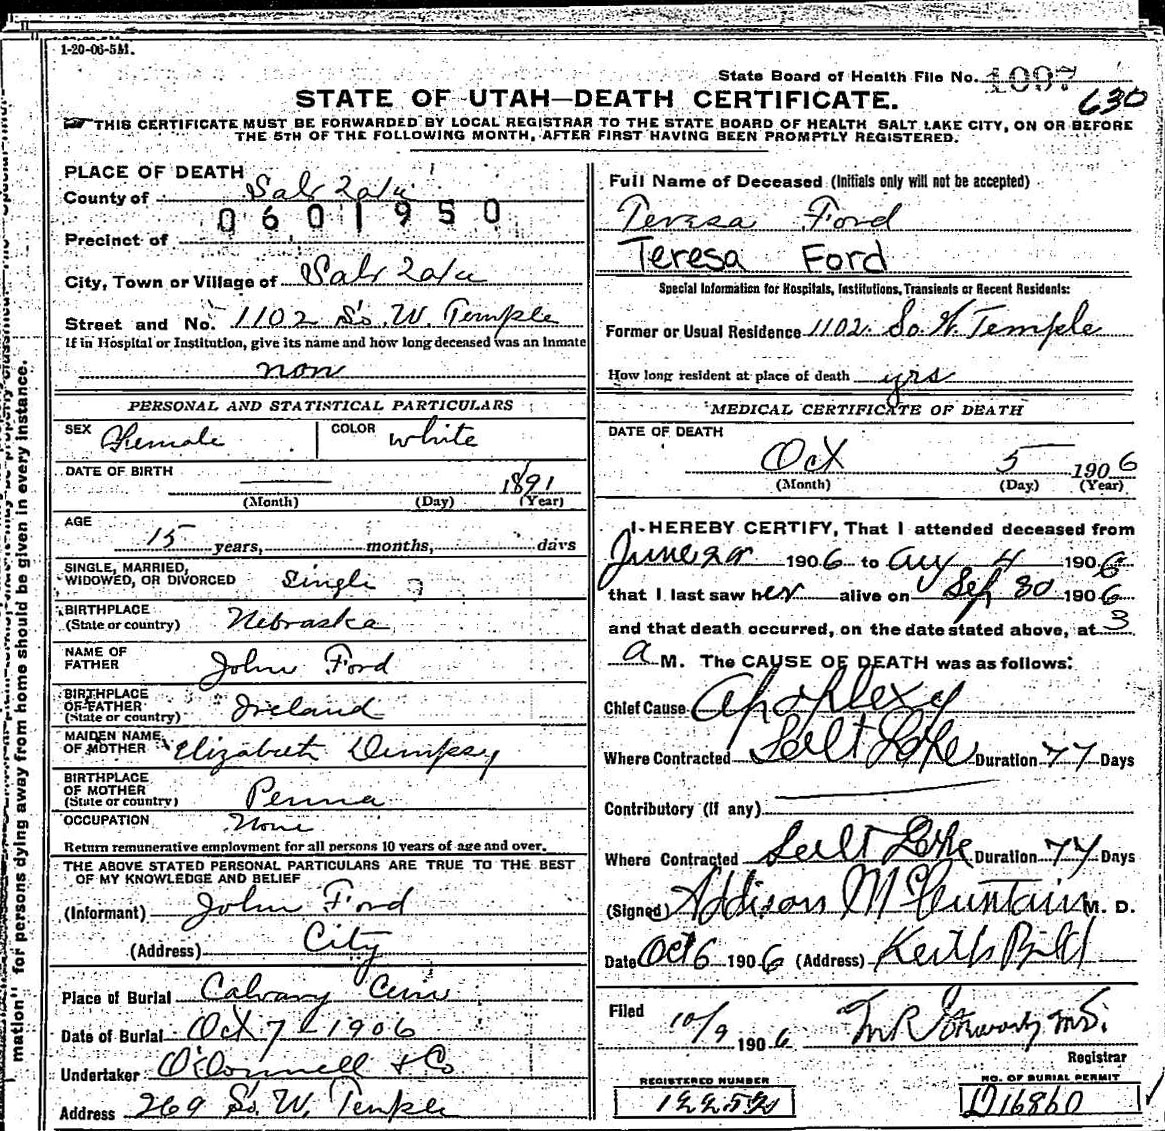 1-20-06-5M.
State Board of Health File No. 1097
630
STATE OF UTAH—DEATH CERTIFICATE.
THIS CERTIFICATE MUST BE FORWARDED BY LOCAL REGISTRAR TO THE STATE BOARD OF HEALTH SALT LAKE CITY, ON OR BEFORE
THE 5TH OF THE FOLLOWING MONTH, AFTER FIRST HAVING BEEN PROMPTLY REGISTERED.
PLACE OF DEATH
County of Salt Lake
0601950
Precinct of
City, Town or Village of Salt Lake
Street and No. 1102 So. W. Temple
If in Hospital or Institution, give its name and how long deceased was an inmate
non
PERSONAL AND STATISTICAL PARTICULARS
SEX Female COLOR white
DATE OF BIRTH 1891
(Month) (Day) (Year)
AGE
15 years, months, days
SINGLE, MARRIED,
WIDOWED, OR DIVORCED Single
BIRTHPLACE
(State or country) Nebraska
NAME OF
FATHER John Ford
BIRTHPLACE
OF FATHER
(State or country) Ireland
MAIDEN NAME
OF MOTHER Elizabeth Dempsy
BIRTHPLACE
OF MOTHER
(State or country) Penna
OCCUPATION None
Return remunerative employment for all persons 10 years of age and over.
THE ABOVE STATED PERSONAL PARTICULARS ARE TRUE TO THE BEST
OF MY KNOWLEDGE AND BELIEF
(Informant) John Ford
(Address) City
Place of Burial Calvary Cem
Date of Burial Oct 7 - 1906
Undertaker O'Donnell & Co
Address 269 So. W. Temple
Full Name of Deceased (Initials only will not be accepted)
Teresa Ford
Teresa Ford
Special Information for Hospitals, Institutions, Transients or Recent Residents:
Former or Usual Residence 1102 So. W. Temple
How long resident at place of death yrs
MEDICAL CERTIFICATE OF DEATH
DATE OF DEATH
Oct 5 1906
(Month) (Day) (Year)
I HEREBY CERTIFY, That I attended deceased from
June 1906 to Aug 4 1906
that I last saw her alive on Sep 30 1906
and that death occurred, on the date stated above, at 3
a M. The CAUSE OF DEATH was as follows:
Chief Cause Apoplexy
Where Contracted Salt Lake Duration 77 Days
Contributory (if any)
Where Contracted Salt Lake Duration 77 Days
(Signed) Addison McCuntain M. D.
Date Oct 6 1906 (Address) Keith Bild
Filed
10/9 1906 M.D.
Registrar
REGISTERED NUMBER
NO. OF BURIAL PERMIT
D16860
mation" for persons dying away from home should be given in every instance.